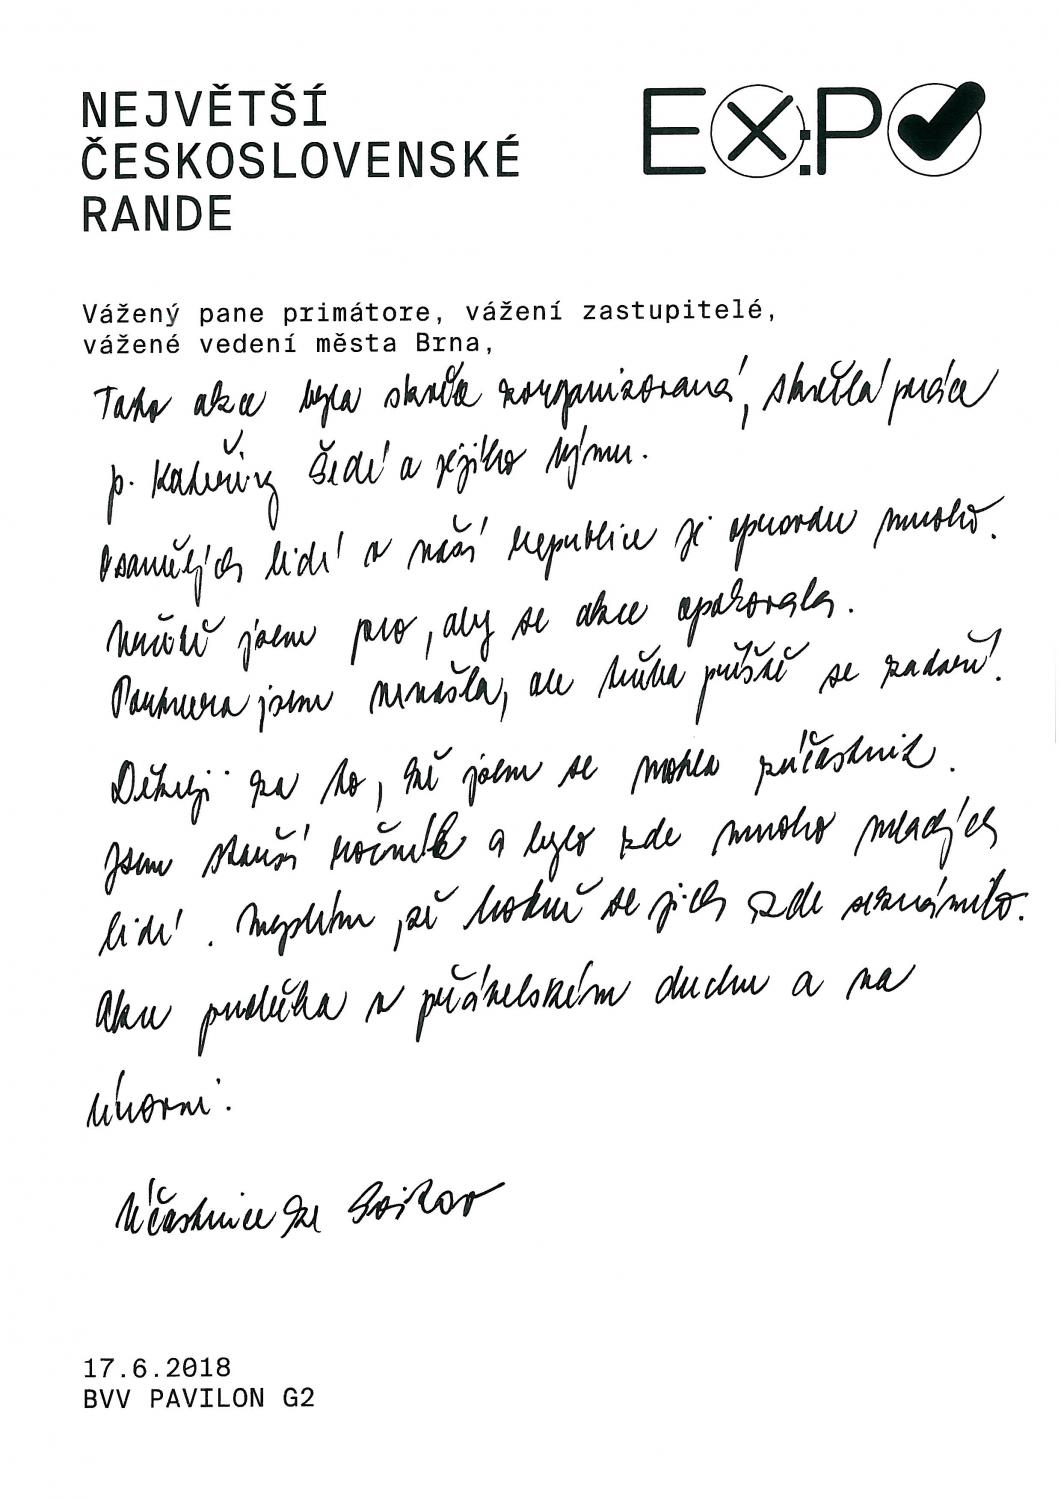 NEJVĚTŠÍ
ČESKOSLOVENSKÉ
RANDE
EX:PO
Vážený pane primátore, vážení zastupitelé,
vážené vedení města Brna,
Tato akce byla skvěle zorganizovaná, skvělá práce
p. Kateřiny Šedé a jejího týmu.
Osamělých lidí v naší republice je opravdu mnoho.
Určitě jsem pro, aby se akce opakovala.
Partnera jsem nenašla, ale třeba příště se zadaří.
Děkuji za to, že jsem se mohla zúčastnit.
Jsem starší ročník a bylo zde mnoho mladých
lidí. Myslím, že hodně se jich zde seznámilo.
Akce proběhla v přátelském duchu a na
úrovni.
Účastnice ze
17.6.2018
BVV PAVILON G2